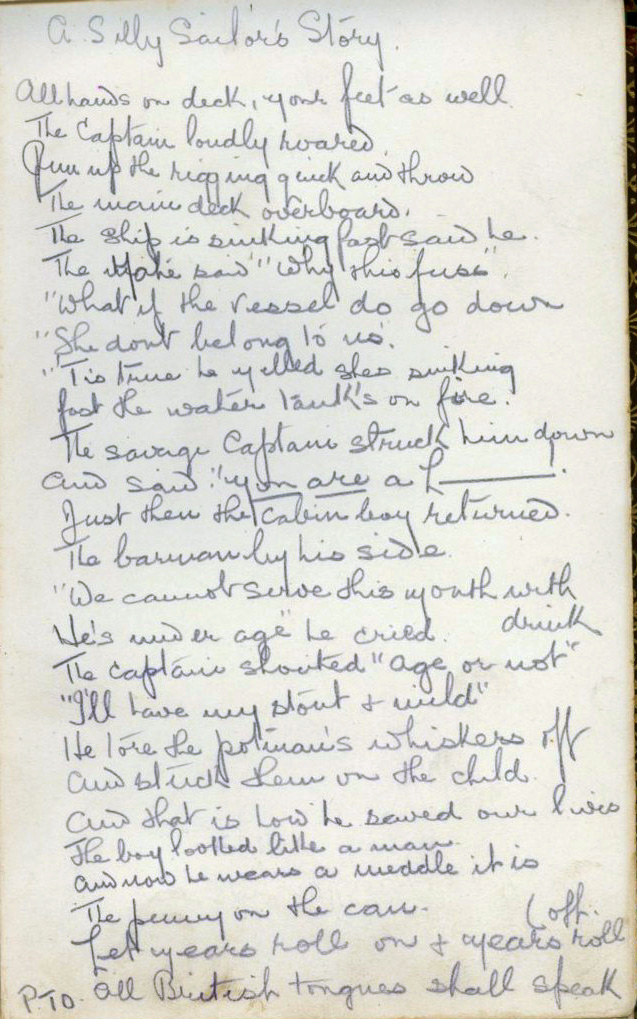 A Silly Sailor's Story.
All hands on deck, your feet as well
The Captain loudly roared.
Run up the rigging quick and throw
The main deck overboard.
The ship is sinking fast said he.
The Mate said "Why this fuss".
"What if the vessel do go down
"She dont belong to us.
"Tis true he yelled shes sinking
fast the water tank's on fire.
The savage Captain struck him down
and said "you are a L______.
Just then the cabin boy returned.
The barman by his side.
"We cannot serve this youth with
drink
He's under age" he cried.
The captain shouted "age or not"
"I'll have my stout & mild"
He tore the potman's whiskers off
and stuck them on the child.
and that is how he saved our lives
The boy looked like a man.
and now he wears a meddle it is
The penny on the can.
Let years roll on & years roll
(off.
All British tongues shall speak
P.T.O.